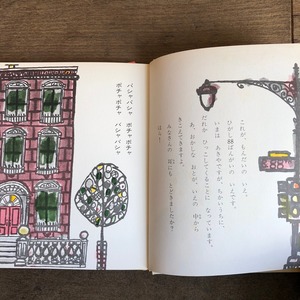 これが、もんだいの いえ。
ひがし88ばんがいの いえです。
いまは あきやですが、ちかいうちに、
だれか ひっこしてくることに なっています。
あ、おかしな おとが、いえの 中から
きこえてきますよ。
みなさんの 耳にも とどきましたか?
ほら!
バシャバシャ ポチャポチャ
ポチャポチャ バシャバシャ